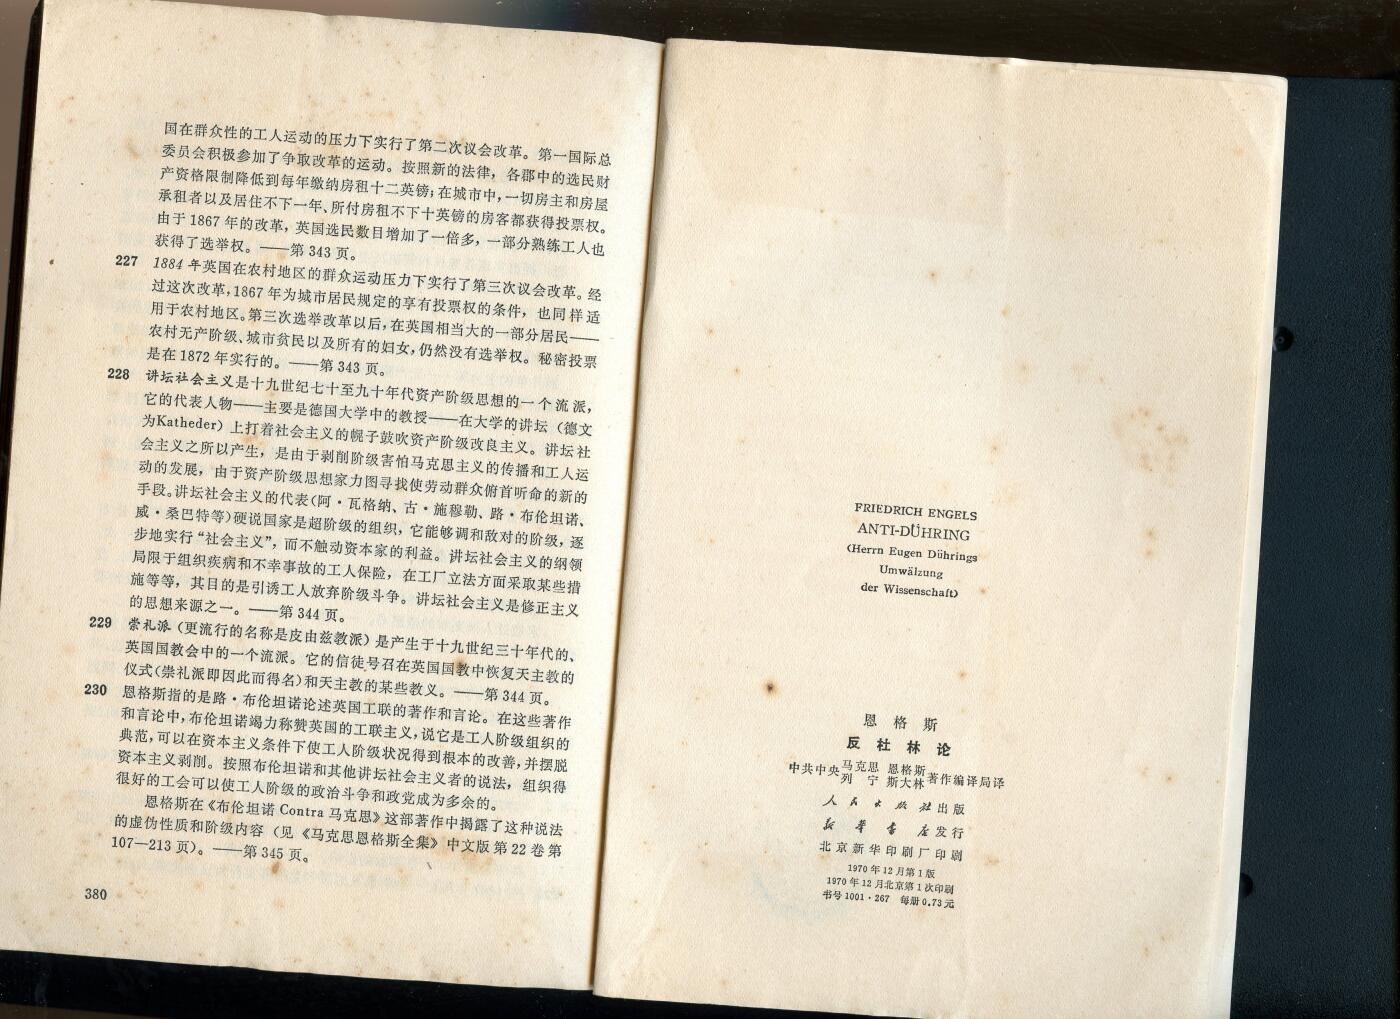 国在群众性的工人运动的压力下实行了第二次议会改革。第一国际总
委员会积极参加了争取改革的运动。按照新的法律，各郡中的选民财
产资格限制降低到每年缴纳房租十二英镑；在城市中，一切房主和房屋
承租者以及居住不下一年、所付房租不下十英镑的房客都获得投票权。
由于1867年的改革，英国选民数目增加了一倍多，一部分熟练工人也
获得了选举权。——第343页。
227 1884年英国在农村地区的群众运动压力下实行了第三次议会改革。经
过这次改革，1867年为城市居民规定的享有投票权的条件，也同样适
用于农村地区。第三次选举改革以后，在英国相当大的一部分居民——
农村无产阶级、城市贫民以及所有的妇女，仍然没有选举权。秘密投票
是在1872年实行的。——第343页。
228 讲坛社会主义是十九世纪七十至九十年代资产阶级思想的一个流派，
它的代表人物——主要是德国大学中的教授——在大学的讲坛（德文
为Katheder）上打着社会主义的幌子鼓吹资产阶级改良主义。讲坛社
会主义之所以产生，是由于剥削阶级害怕马克思主义的传播和工人运
动的发展，由于资产阶级思想家力图寻找使劳动群众俯首听命的新的
手段。讲坛社会主义的代表（阿·瓦格纳、古·施穆勒、路·布伦坦诺、
威·桑巴特等）硬说国家是超阶级的组织，它能够调和敌对的阶级，逐
步地实行“社会主义”，而不触动资本家的利益。讲坛社会主义的纲领
局限于组织疾病和不幸事故的工人保险，在工厂立法方面采取某些措
施等等，其目的是引诱工人放弃阶级斗争。讲坛社会主义是修正主义
的思想来源之一。——第344页。
229 崇礼派（更流行的名称是皮由兹教派）是产生于十九世纪三十年代的、
英国国教会中的一个流派。它的信徒号召在英国国教中恢复天主教的
仪式（崇礼派即因此而得名）和天主教的某些教义。——第344页。
230 恩格斯指的是路·布伦坦诺论述英国工联的著作和言论。在这些著作
和言论中，布伦坦诺竭力称赞英国的工联主义，说它是工人阶级组织的
典范，可以在资本主义条件下使工人阶级状况得到根本的改善，并摆脱
资本主义剥削。按照布伦坦诺和其他讲坛社会主义者的说法，组织得
很好的工会可以使工人阶级的政治斗争和政党成为多余的。
恩格斯在《布伦坦诺Contra马克思》这部著作中揭露了这种说法
的虚伪性质和阶级内容（见《马克思恩格斯全集》中文版第22卷第
107—213页）。——第345页。
380
FRIEDRICH ENGELS
ANTI-DÜHRING
(Herrn Eugen Dührings
Umwälzung
der Wissenschaft)
恩格斯
反杜林论
中共中央马克思 恩格斯
列宁 斯大林著作编译局译
人民出版社出版
新华书店发行
北京新华印刷厂印刷
1970年12月第1版
1970年12月北京第1次印刷
书号1001·267 每册0.73元